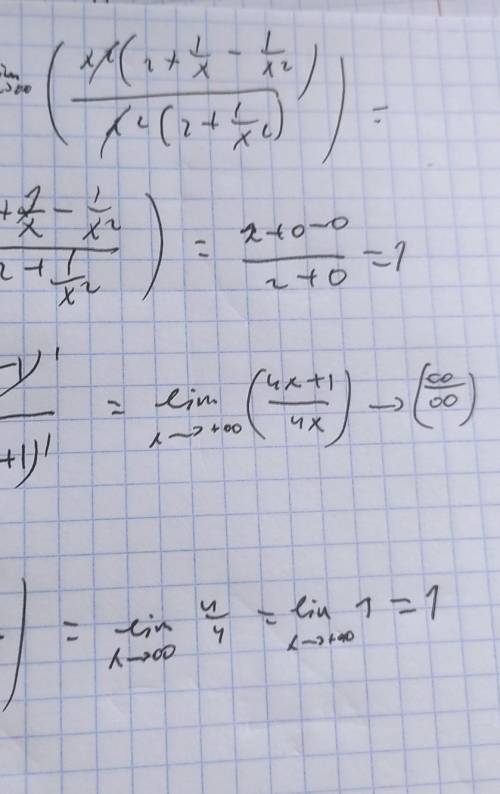 x→∞ ( x²(2 + 1/x − 1/x²) / x²(2 + 1/x²) ) =
+ 1/x − 1/x² / 2 + 1/x² ) = 2+0−0 / 2+0 = 1
−1)' / +1)' = lim x→+∞ (4x+1 / 4x) → (∞/∞)
) = lim x→∞ 4/4 = lim x→+∞ 1 = 1